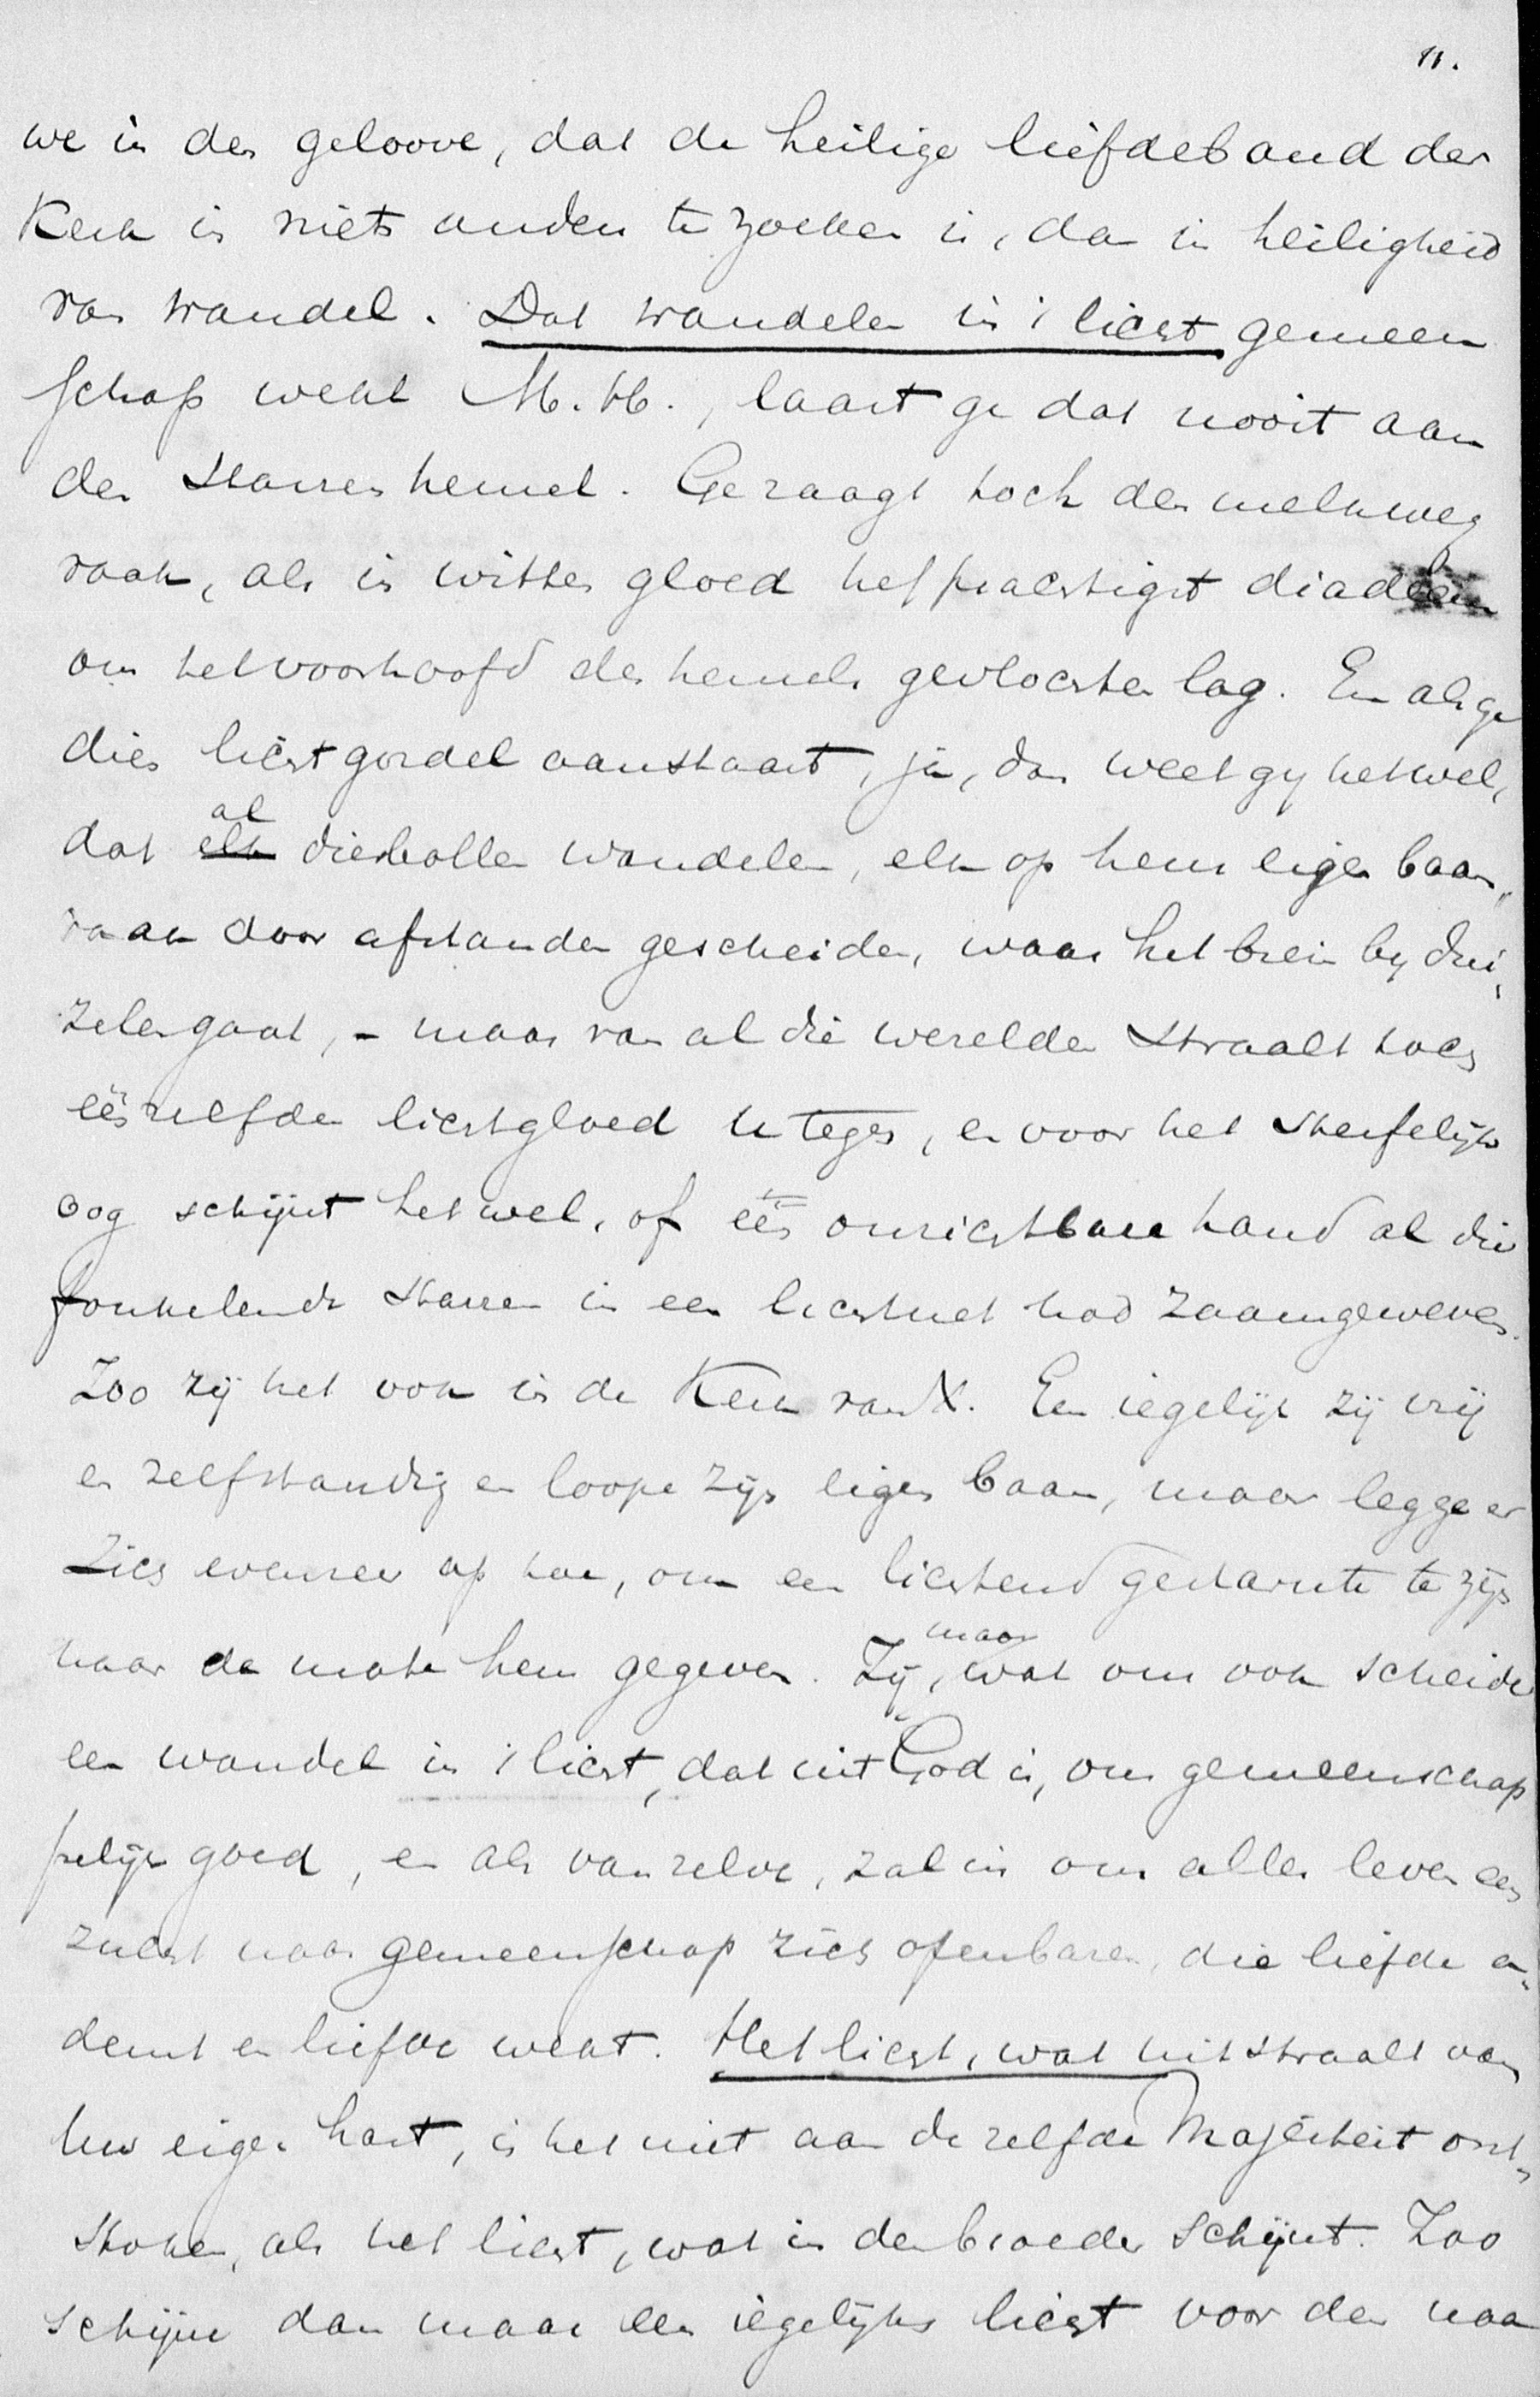 11.
we in den geloove, dat de heilige liefdeband der
Kerk in niets anders te zoeken is, dan in heiligheid
van wandel. Dat wandelen in 't licht gemeen
schap wekt M. H., laast ge dat nooit aan
den starrenhemel. Ge zaagt toch den melkweg
vaak, als in witten gloed het prachtigst diadeem
om het voorhoofd des hemels gevlochten lag. En als ge
dien lichtgordel aanstaart, ja, dan weet gy het wel,
dat al dier bollen wandelen, elk op hun eigen baan,
vaak door afstanden gescheiden, waar het brein by dui„
zelen gaat, – maar van al die werelden straalt toch
één zelfden lichtgloed u tegen, en voor het sterfelijk
oog schijnt het wel, of één onzichtbare hand al die
fonkelende starren in een lichtnet had zaamgeweven.
Zoo zij het ook in de Kerk van X. Een iegelijk zij vrij
en zelfstandig en loope zijn eigen baan, maar legge er
zich evenzeer op toe, om een lichtend gestarnte te zijn
naar de mate hem gegeven. Zij, maar wat ons ook scheide
een wandel in 't licht, dat uit God is, ons gemeenschap
pelijk goed, en als van zelve, zal in ons aller leven een
zucht naar gemeenschap zich openbaren, die liefde a„
demt en liefde wekt. Het licht, wat uitstraalt van
Uw eigen hart, is het niet aan dezelfde Majesteit ont„
stoken, als het licht, wat in den broeder schijnt. Zoo
schijne dan maar een iegelijks licht voor den naa